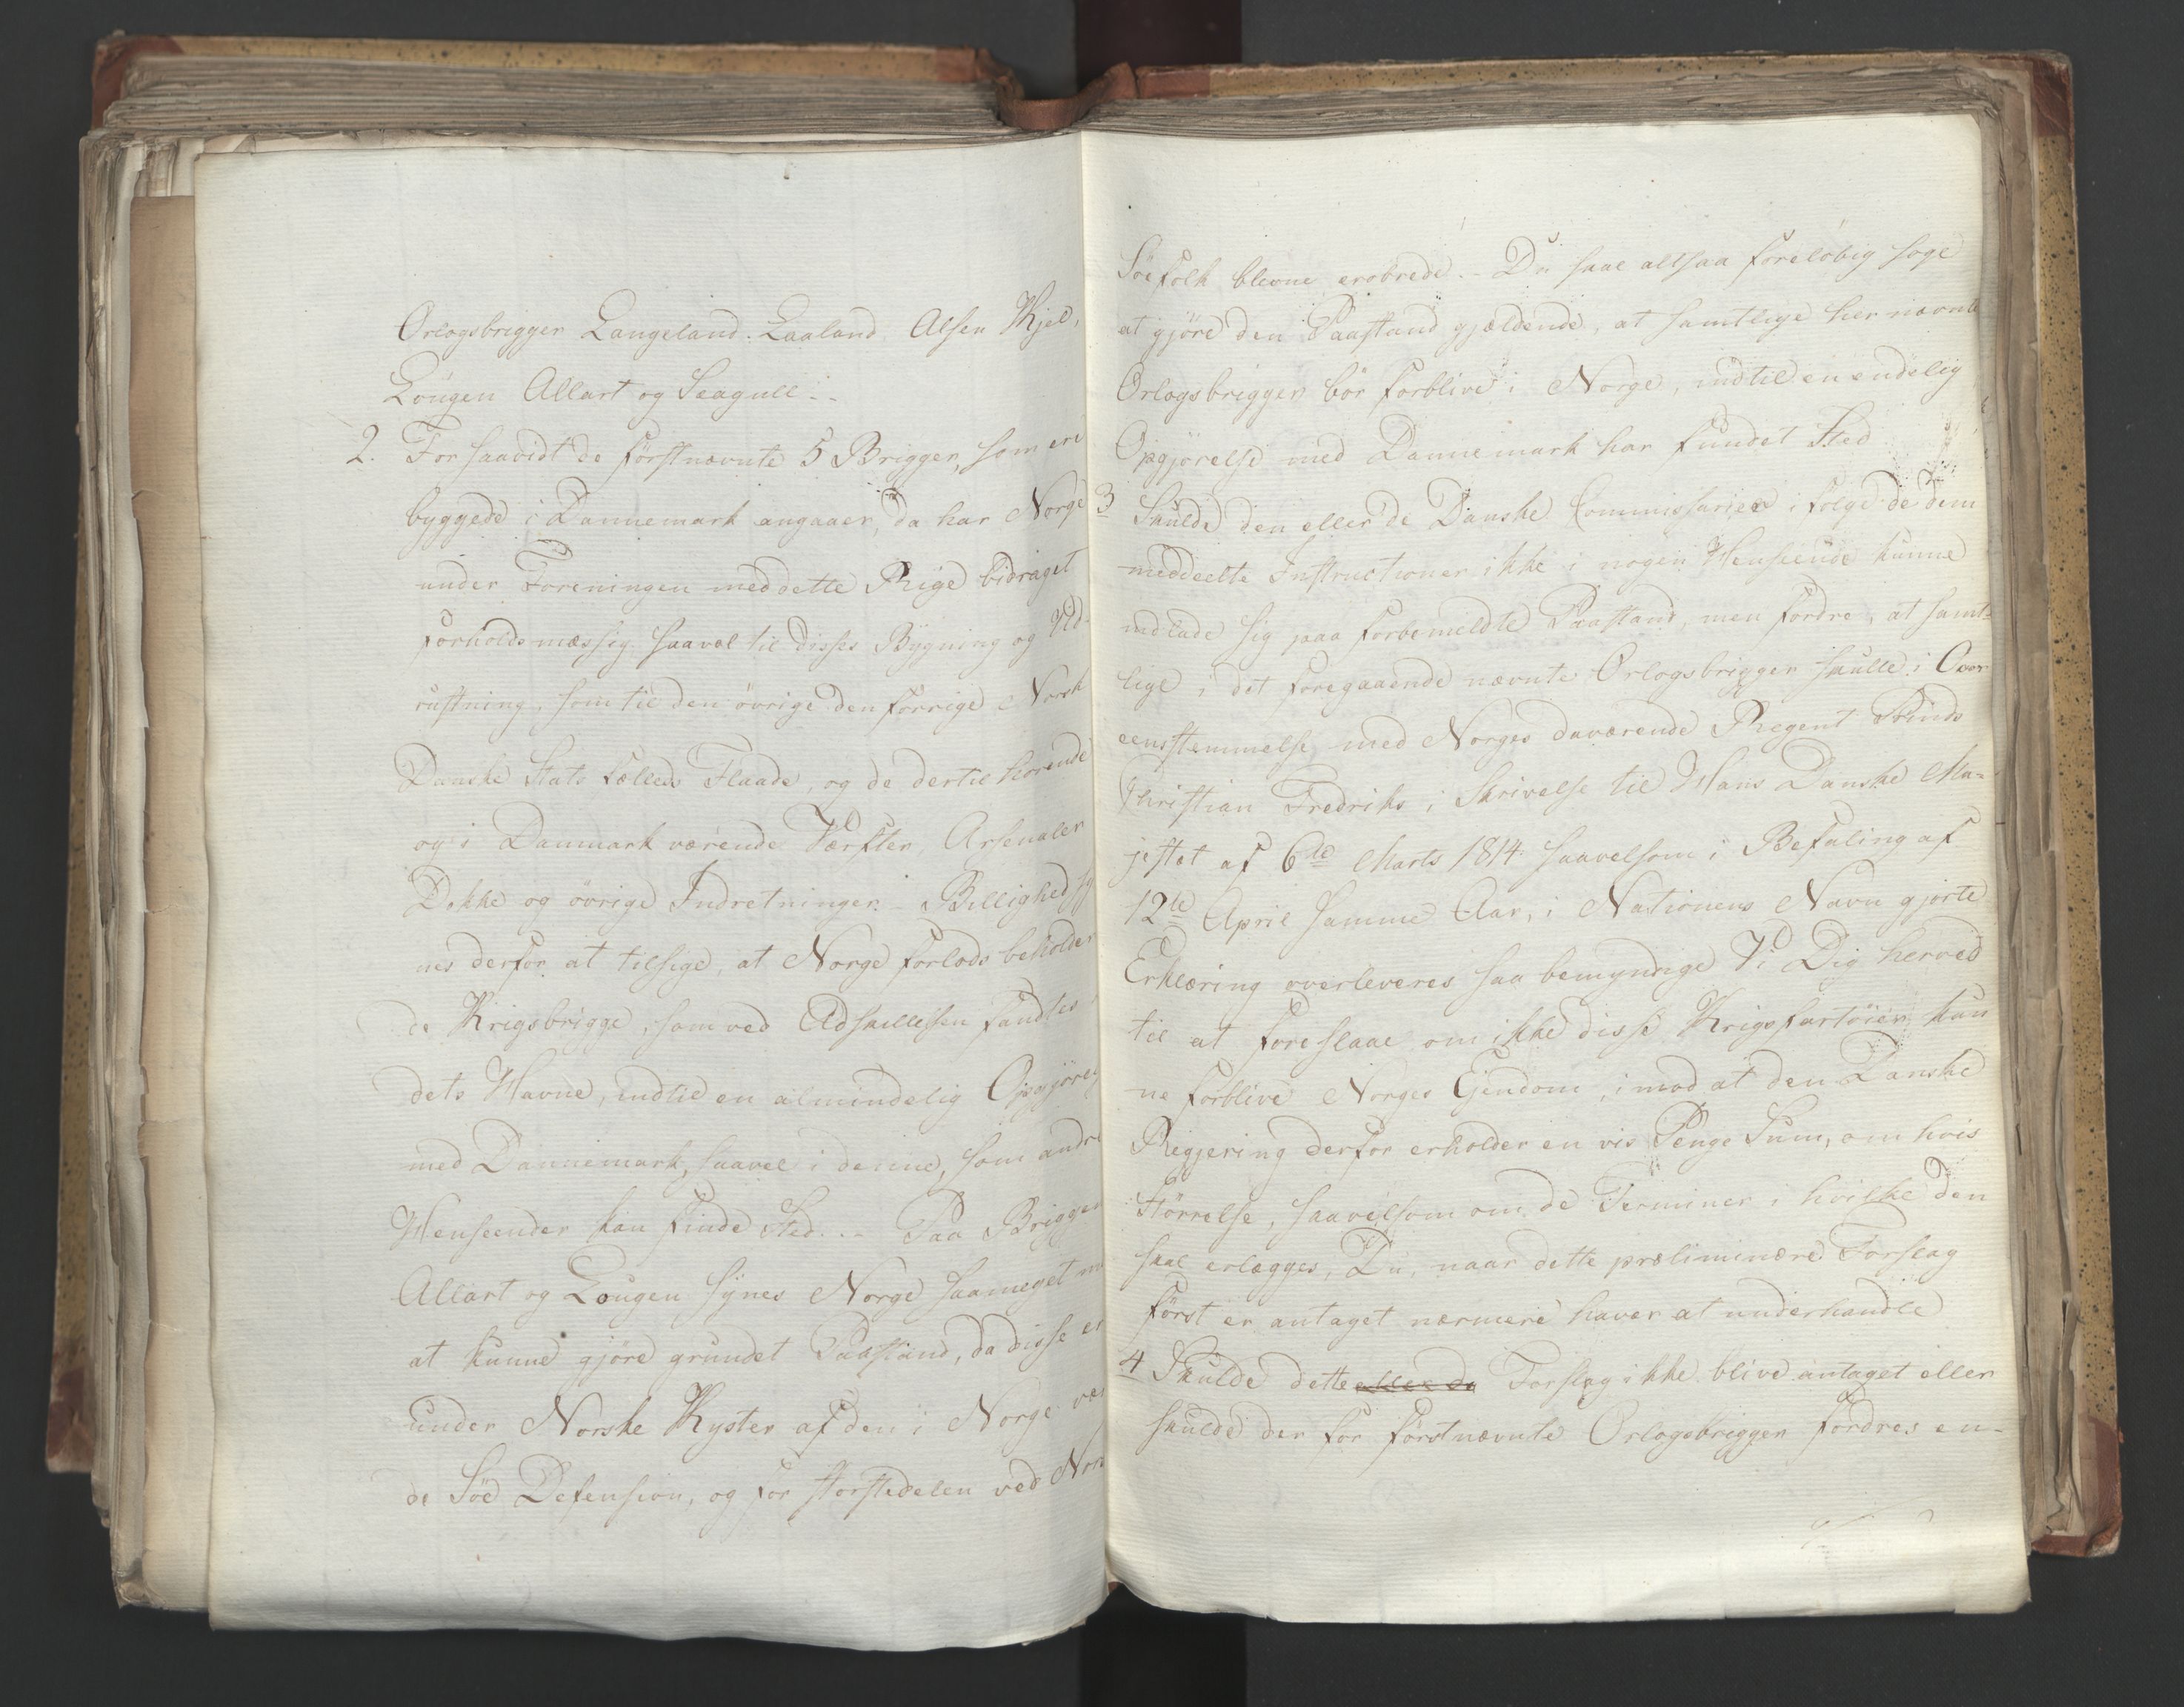 Orlogsbrigger Langeland. Laaland. Alsen Kjel,
Lougen Allart og Seagull..
2. For saavidt de förstnævnte 5 Brigger, som ere
byggede i Dannemark angaaer, da har Norge
under Foreningen med dette Rige bidraget
forholdsmæssig saavel til disses Bÿgning og Ud-
rustning, som til den övrige den forrige Norsk
Danske Stats fælleds Flaade, og de dertil hörende
og i Danmark værende Værfter, Arsenaler
Dokke og övrige Indretninger. - Billighed sÿ
nes derfor at tilsige, at Norge forlods beholder
de Krigsbrigge, som ved Adskillelsen fandtes i
dets Havne, indtil en almindelig Opgjörels
med Dannemark, saavel i denne, som andre
Henseender kan finde Sted... - Paa Briggen
Allart og Lougen sÿnes Norge saameget m
at kunne gjöre grundet Paastand, da disse er
under Norske Kyster af den i Norge vær
de Söe Defension, og for störstedelen ved Nors
Söefolk blevne erobrede. - Du skal altsaa forelöbig söge
at gjöre den Paastand gjældende, at samtlige her nævnte
Orlogsbrigger bör forblive i Norge, indtil en endelig
Opgjörelse med Dannemark har fundet Sted
3 Skulde den eller de Danske Commissarier i fölge de dem
meddeelte Instructioner ikke i nogen Henseende kunne
indlade sig paa forbemeldte Paastand, men fordre, at samt-
lige i det foregaaende nævnte Orlogsbrigger skulle i Over
eensstemmelse med Norges daværende Regent Prinds
Christian Fredriks i Skrivelse til Hans Danske Ma-
jestet af 6te Marts 1814 saavelsom i Befaling af
12te April samme Aar, i Nationens Navn gjorte
Erklæring overleveres saa bemyndige Vi Dig herved
til at foreslaae om ikke disse Krigsfartöier kun
ne forblive Norges Ejendom, imod at den Danske
Regjering derfor erholder en vis Penge Sum, om hvis
Störrelse, saavelsom om de Terminer i hvilke den
skal erlægges, Du, naar dette præliminære Forslag
först er antaget nærmere haver at underhandle
4 Skulde dette eller de Forslag ikke blive antaget eller
skulde der for förstnævnte Orlogsbrigger fordres en-